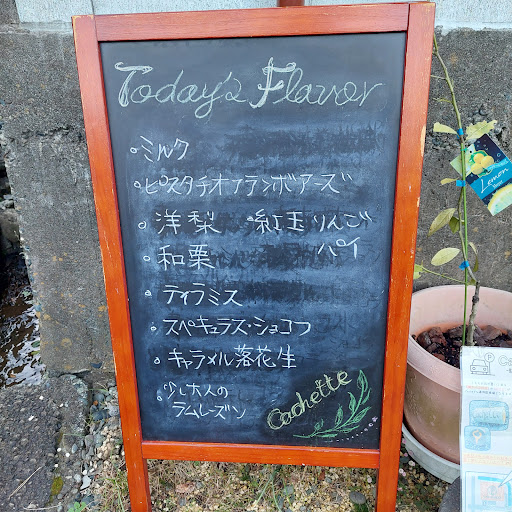 Today's Flavor
・ミルク
・ピスタチオフランボアーズ
・洋梨 ・紅玉りんご
パイ
・和栗
・ティラミス
・スペキュラス・ショコラ
・キャラメル落花生
・少し大人の
ラムレーズン
Cachette
Lemon